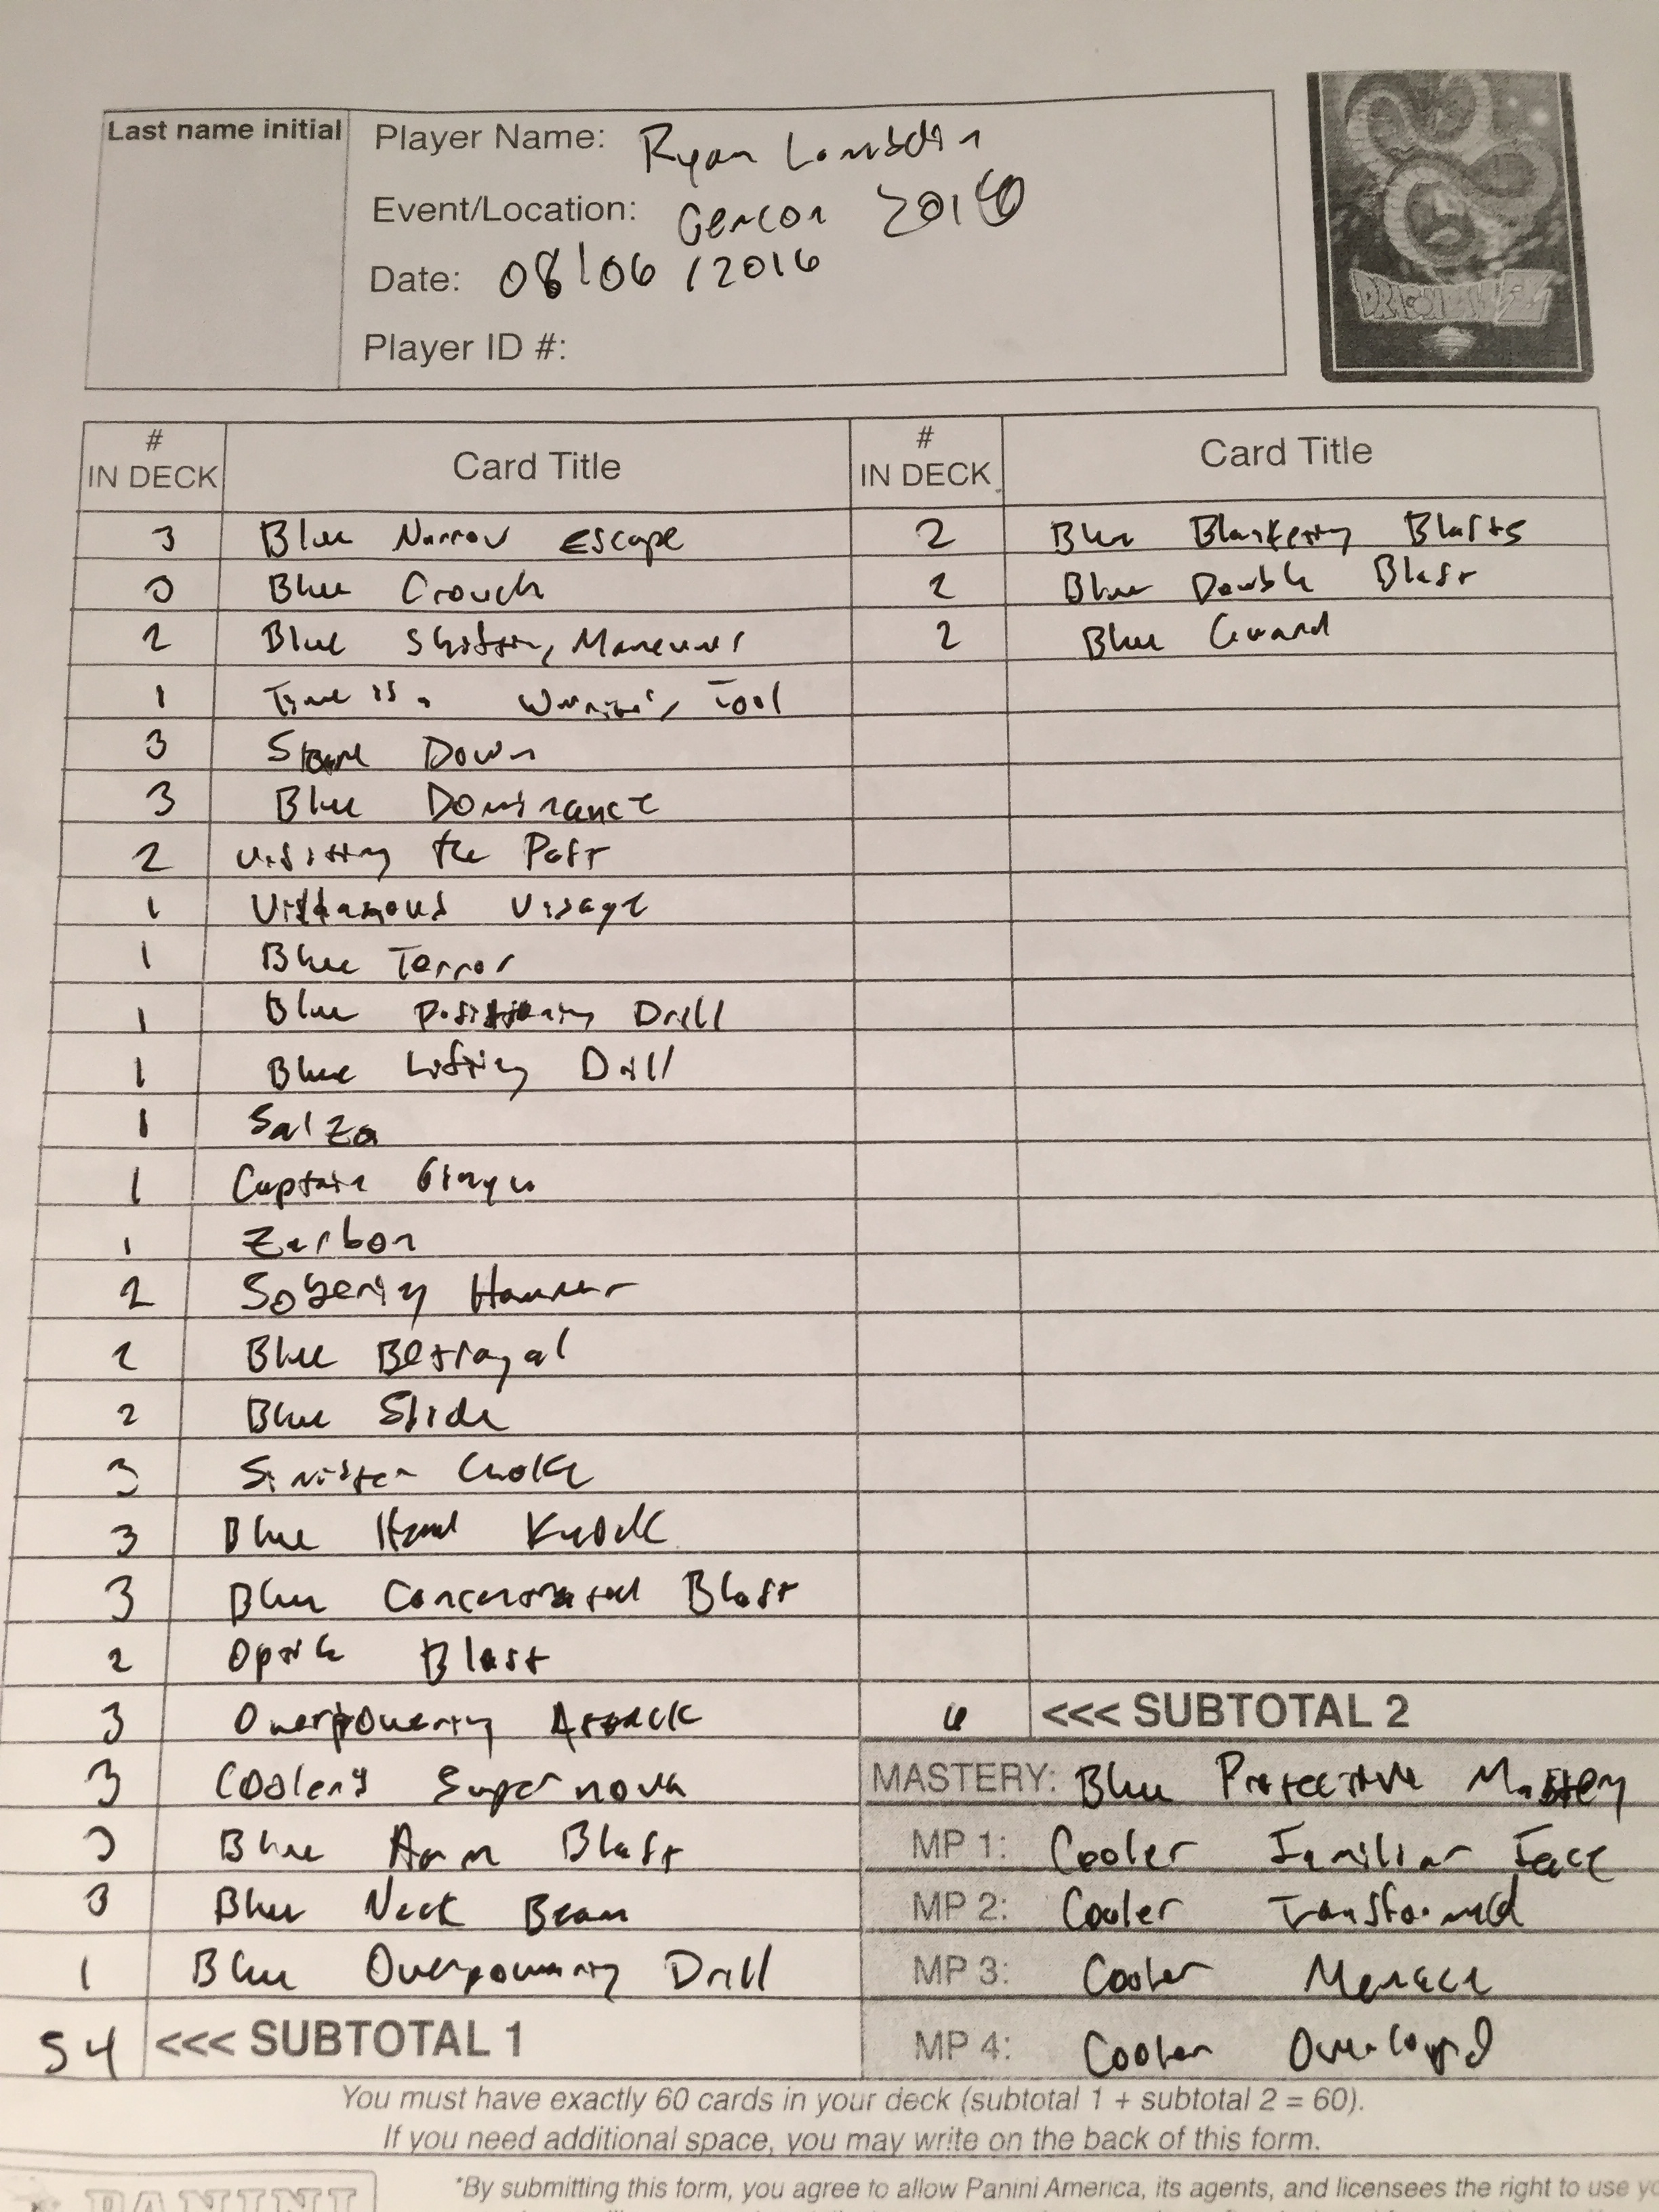 Last name initial
Player Name: Ryan
Event/Location: Gencon 2016
Date: 08/06/2016
Player ID #:
DRAGON BALL Z
# IN DECK Card Title # IN DECK Card Title
3 Blue Narrow Escape 2 Blue Blasts
3 Blue Crouch 2 Blue Double Blast
2 Blue Shifting Maneuver 2 Blue Guard
1 Time is a Warrior's Tool
3 Stare Down
3 Blue Dominance
2 Visiting the Past
1 Villainous Visage
1 Blue Terror
1 Blue Positioning Drill
1 Blue Lifting Drill
1 Salza
1 Captain Ginyu
1 Zarbon
2 Sobering Hammer
2 Blue Betrayal
2 Blue Slide
3 Sinister Choke
3 Blue Head Knock
3 Blue Concentrated Blast
2 Optic Blast
3 Overpowering Attack 6 <<< SUBTOTAL 2
3 Cooler's Supernova MASTERY: Blue Protective Mastery
3 Blue Arm Blast MP 1: Cooler Familiar Face
3 Blue Neck Beam MP 2: Cooler Transformed
1 Blue Overpowering Drill MP 3: Cooler Menace
54 <<< SUBTOTAL 1 MP 4: Cooler
You must have exactly 60 cards in your deck (subtotal 1 + subtotal 2 = 60).
If you need additional space, you may write on the back of this form.
PANINI
*By submitting this form, you agree to allow Panini America, its agents, and licensees the right to use